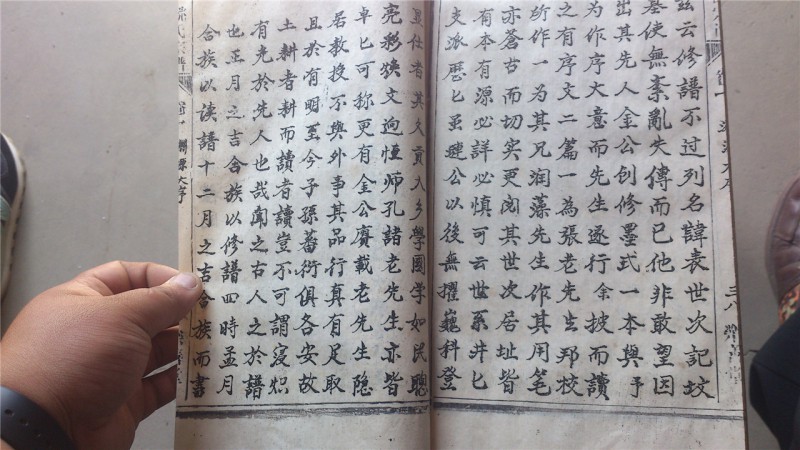 茲云修譜不过列名諱表世次記坟
墓使無紊亂失傳而已他非敢望因
出其先人金公創修墨式一本與予
为作序大意而先生遂行余披而讀
之有序文二篇一為張老先生邦校
所作一为其兄润藻先生作其用笔
亦蒼古而切实更阅其世次居址皆
有本有源必詳必慎可云世系井匕
支派歷匕虽建公以後無擢巍科登
显仕者其久貢入乡學国学如民聰
亮彩焕文逈恒师孔諸老先生亦皆
卓匕可称更有金公賡載老先生隐
若教授不與外事其品行真有足取
且於有明至今子孫蕃衍俱各安故
土耕者耕而讀者讀豈不可謂寝炽
有光於先人也哉聞之古人之於譜
也正月之吉合族以修譜四時孟月
合族以读譜十二月之吉合族而書
氏宗譜